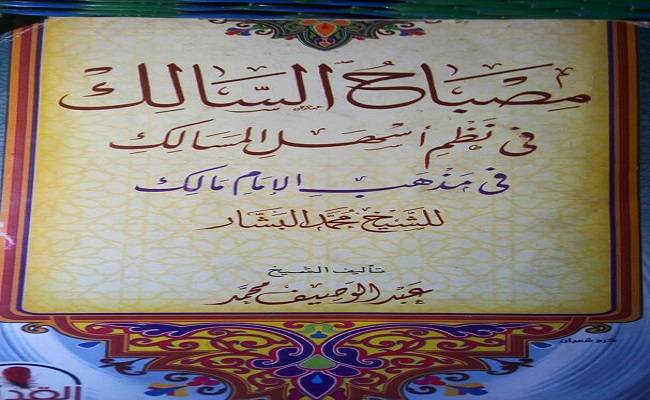 مِصْبَاحُ السَّالِكِ
فى نَظْمِ أَسْهَلِ المَسَالِكِ
فى مَذْهَبِ الإمَامِ مَالِك
للشَّيْخِ مُحَمَّد البَشَّار
تأليف الشيخ
عَبْد الوَصِيف مُحَمَّد
كرم شعبان